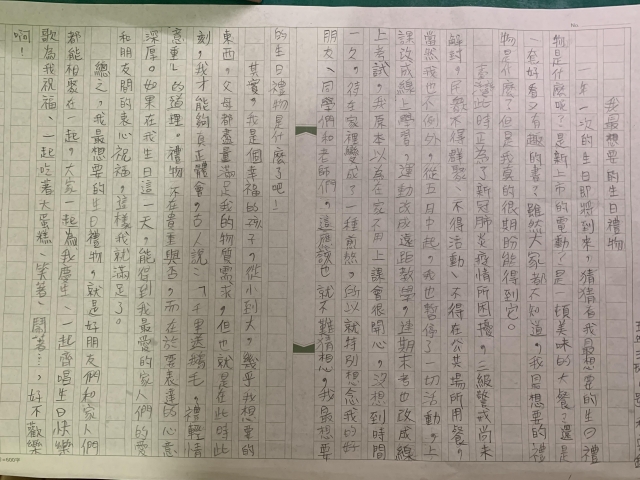 我最想要的生日禮物
一年一次的生日即將到來，猜猜看我最想要的生日禮
物是什麼呢？是新上市的電動？是一頓美味的大餐？還是
一套好看又有趣的書？雖然大家都不知道，我最想要的禮
物是什麼？但是我真的很期盼能得到它。
臺灣此時正為了新冠肺炎疫情所困擾，二級警戒尚未
解封，用餐不得群聚、不得活動、不得在公共場所用餐。
當然我也不例外，從五月中起，我也暫停了一切活動，上
課改成線上學習，運動改成遠距教學，連期末考也改成線
上考試，我原本以為在家不用上課會很開心，沒想到時間
一久，待在家裡變成了一種煎熬，所以就特別想念我的好
朋友、同學們和老師們。這應該也就不難猜想，我最想要
的生日禮物是什麼了吧！
其實，我是個幸福的孩子，從小到大，幾乎我想要的
東西，父母都盡量滿足我的物質需求，但也就是在此時此
刻，我才能夠真正體會，古人說：「千里送鵝毛，禮輕情
意重」的道理。禮物不在貴重與否，而在於要表達的心意
深厚。如果在我生日這一天，能留到我最愛的家人們的愛
和朋友間的衷心祝福，這樣我就滿足了。
總之，我最想要的生日禮物，就是好朋友們和家人們
都能相聚在一起，大家一起為我慶生、一起齊唱生日快樂
歌為我祝福、一起吃著大蛋糕、笑著、鬧著…，好不歡樂
啊！